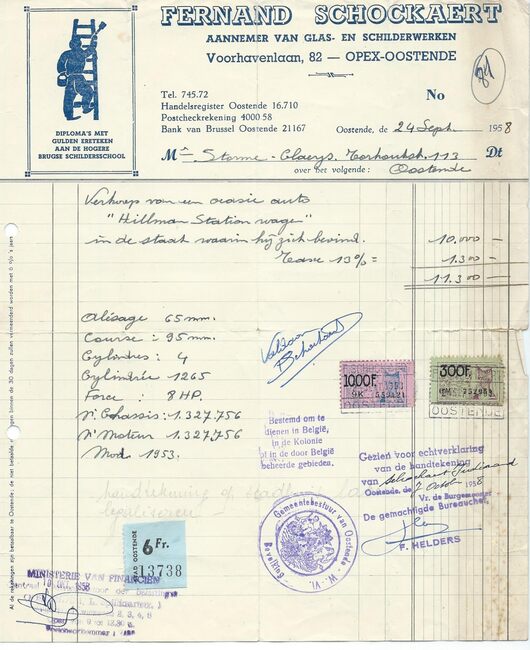 FERNAND SCHOCKAERT
AANNEMER VAN GLAS- EN SCHILDERWERKEN
Voorhavenlaan, 82 — OPEX-OOSTENDE
DIPLOMA'S MET
GULDEN ERETEKEN
AAN DE HOGERE
BRUGSE SCHILDERSSCHOOL
Tel. 745.72
Handelsregister Oostende 16.710
Postcheckrekening 4000 58
Bank van Brussel Oostende 21167
No
Oostende, de 24 Sept. 1958
Mr Storme-Claeys. Torhoutst. 113 Dt
over het volgende: Oostende
Verkoop van een occasie auto
"Hillman Station wagen"
in de staat waarin hij zich bevind. 10.000 —
Taxe 13% = 1.300 —
11.300 —
Alésage 65 mm.
Course : 95 mm.
Cylindres : 4
Cylindrée 1265
Force : 8 HP.
N° Chassis : 1.327.756
N° Moteur : 1.327.756
Mod 1953.
Voldaan
Schockaert
1000F.
9K
OOSTENDE
300F.
OOSTENDE
Bestemd om te
dienen in België,
in de Kolonie
of in de door België
beheerde gebieden.
Gezien voor echtverklaring
van de handtekening
van Schockaert Ferdinand
Oostende, de Octob. 1958
Vr. de Burgemeester
De gemachtigde Bureauchef,
F. HELDERS
Gemeentebestuur van Oostende W. Vl.
Bevolking
handtekening op stadhuis
legaliseren
STAD OOSTENDE
6 Fr.
13738
MINISTERIE VAN FINANCIEN